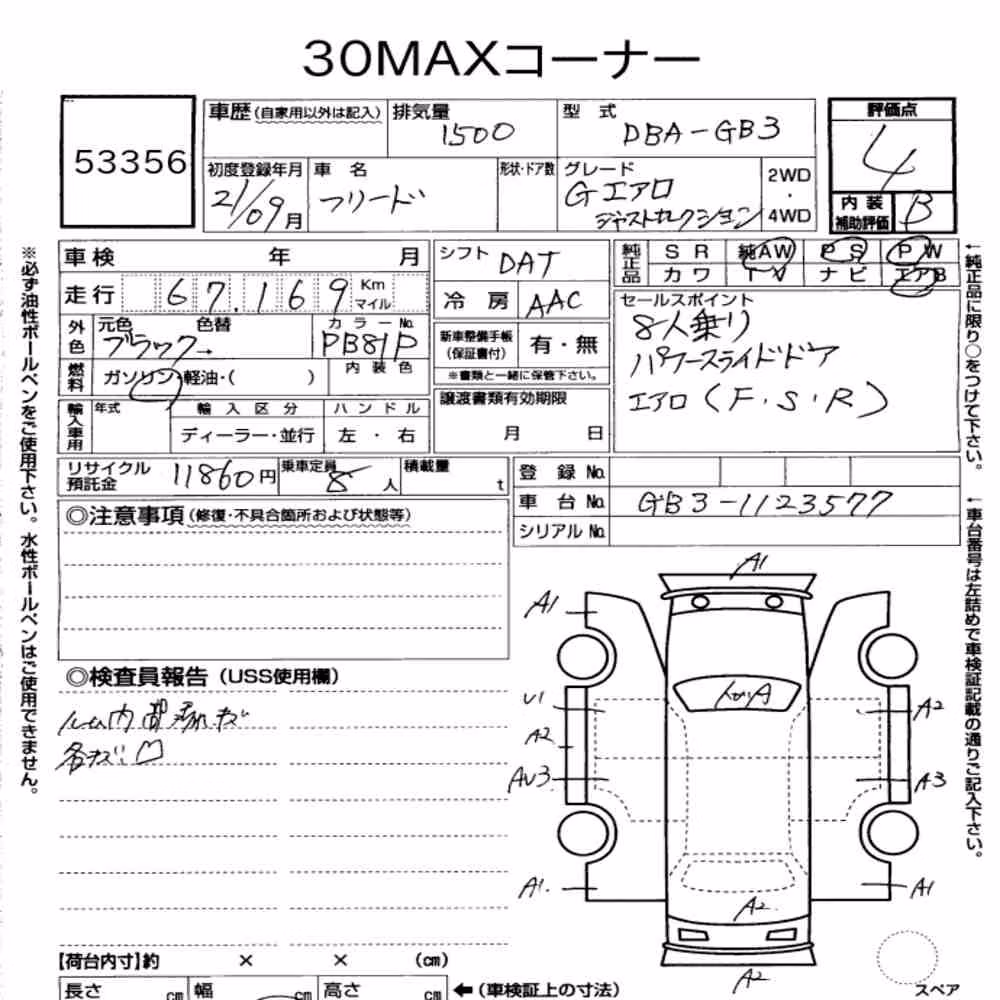 30MAXコーナー
53356
車歴(自家用以外は記入) 排気量 1500 型式 DBA-GB3 評価点 4
初度登録年月 21/09月 車名 フリード 形状・ドア数 グレード Gエアロ ジャストセレクション 2WD・4WD 内装補助評価 B
車検 年 月 シフト DAT 純正品 SR 純AW PS PW
走行 67,169 Km マイル 冷房 AAC カワ TV ナビ エアB
外色 元色 ブラック→ 色替 カラーNo. PB81P 内装色
新車整備手帳(保証書付) 有・無
※書類と一緒に保管下さい。
セールスポイント
8人乗り
パワースライドドア
エアロ(F.S.R)
燃料 ガソリン・軽油・( )
譲渡書類有効期限 月 日
輸入車用 年式 輸入区分 ハンドル
ディーラー・並行 左・右
リサイクル預託金 11860円 乗車定員 8人 積載量 t
登録No.
車台No. GB3-1123577
シリアルNo.
◎注意事項(修復・不具合箇所および状態等)
◎検査員報告(USS使用欄)
A1
A1
U1
A2
A2
AU3
A3
A1.
A1
A2
A2
スペア
【荷台内寸】約 × × (cm)
長さ cm 幅 cm 高さ cm ←(車検証上の寸法)
※必ず油性ボールペンをご使用下さい。水性ボールペンはご使用できません。
←純正品に限り○をつけて下さい。
←車台番号は左詰めで車検証記載の通りご記入下さい。